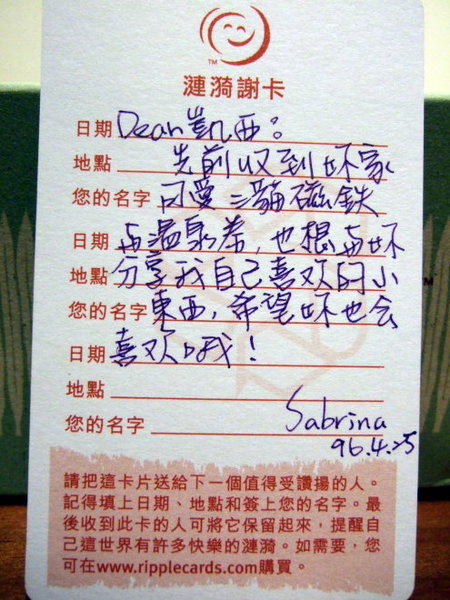 TM
漣漪謝卡
日期 Dear凱西:
地點 先前收到妳家
您的名字 可愛 貓磁鉄
日期 与溫泉 , 也想与妳
地點 分享我自己喜欢的小
您的名字 東西, 希望妳也会
日期 喜欢哦!
地點
您的名字 Sabrina
96.4.25
請把這卡片送給下一個值得受讚揚的人。
記得填上日期、地點和簽上您的名字。最
後收到此卡的人可將它保留起來，提醒自
己這世界有許多快樂的漣漪。如需要，您
可在www.ripplecards.com購買。